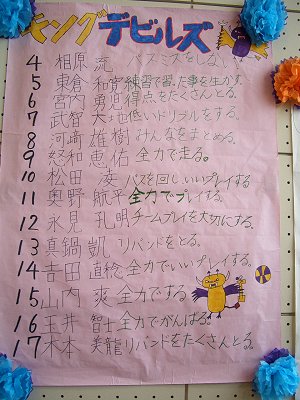 モングデビルズ
4 相原 流 パスミスをしない
5 東倉 和賀 練習で習った事を生かす。
6 宮内 勇迅 得点をたくさんとる。
7 武智 大地 低いドリブルをする。
8 河崎 雄樹 みんなをまとめる。
9 怒和 恵佑 全力で走る。
10 松田 凌 パスを回しいいプレイする
11 奥野 航平 全力でプレイする。
12 永見 孔明 チームプレイを大切にする。
13 真鍋 凱 リバンドをとる。
14 吉田 直稔 全力でいいプレイする。
15 山内 爽 全力でする。
16 玉井 智士 全力でがんばる。
17 木本 美龍 リバンドをたくさんとる。